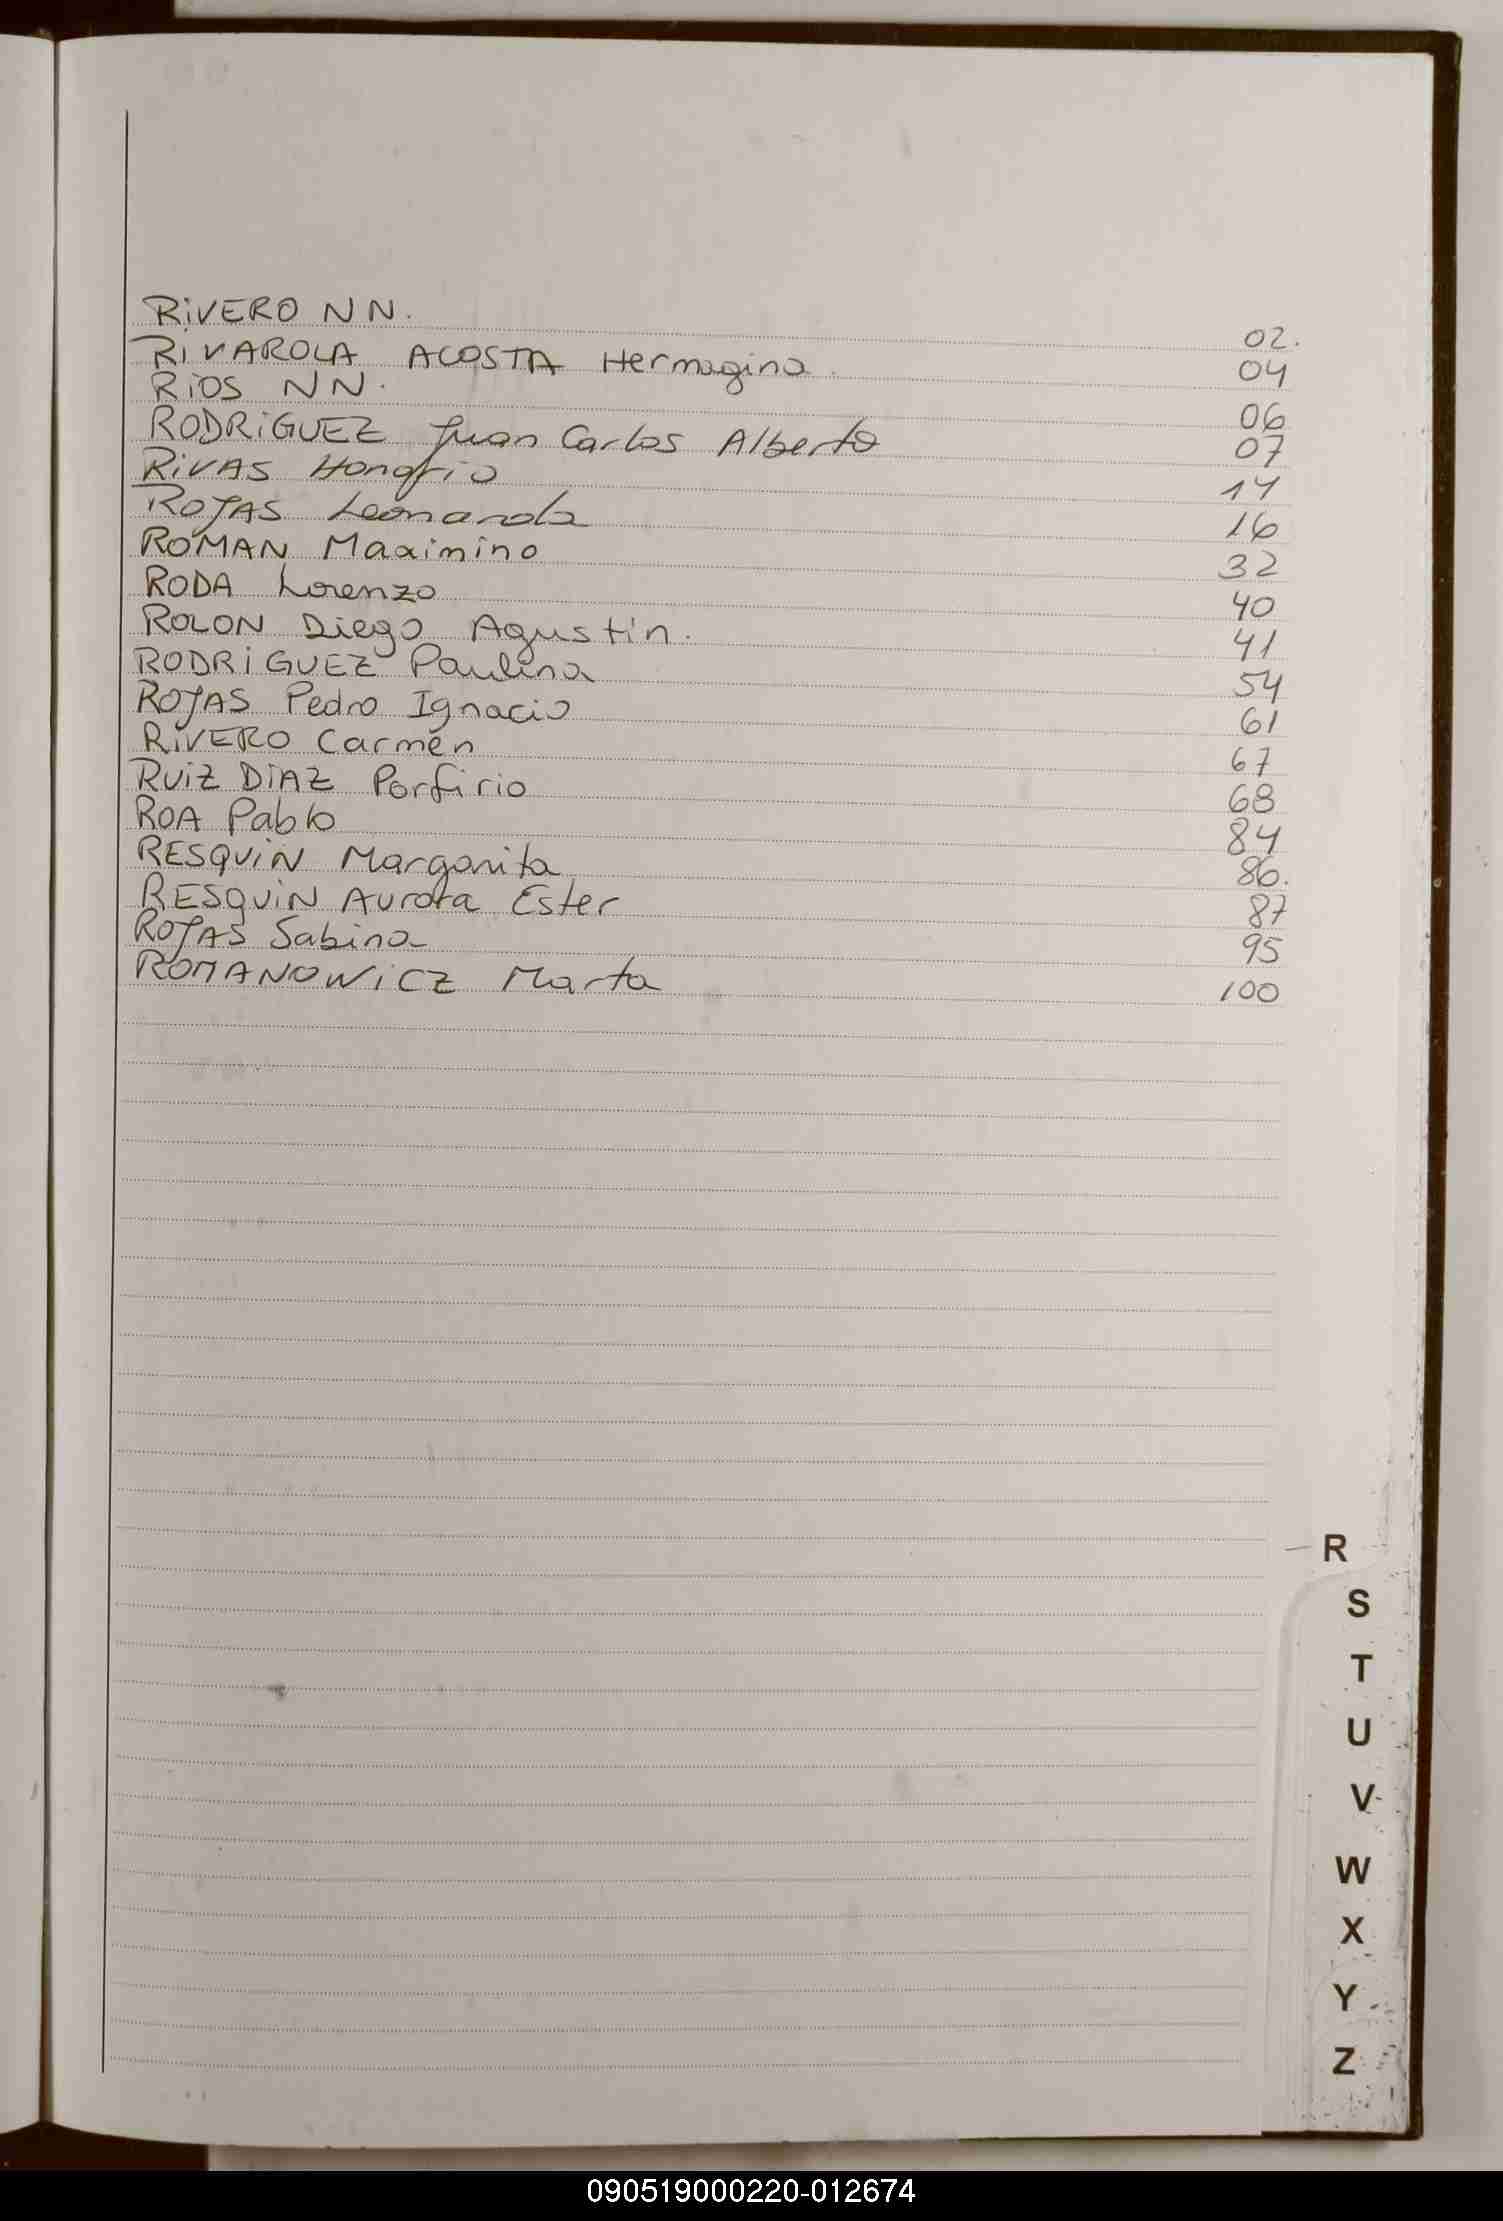 RIVERO NN. 02.
RIVAROLA ACOSTA Hermogina. 04
RIOS NN. 06
RODRIGUEZ Juan Carlos Alberto 07
RIVAS Honofrio 14
ROJAS Leonarda 16
ROMAN Maximino 32
RODA Lorenzo 40
ROLON Diego Agustin. 41
RODRIGUEZ Paulina 54
ROJAS Pedro Ignacio 61
RIVERO Carmen 67
RUIZ DIAZ Porfirio 68
ROA Pablo 84
RESQUIN Margarita 86.
RESQUIN Aurora Ester 87
ROJAS Sabina 95
ROMANOWICZ Marta 100
R
S
T
U
V
W
X
Y
Z
090519000220-012674